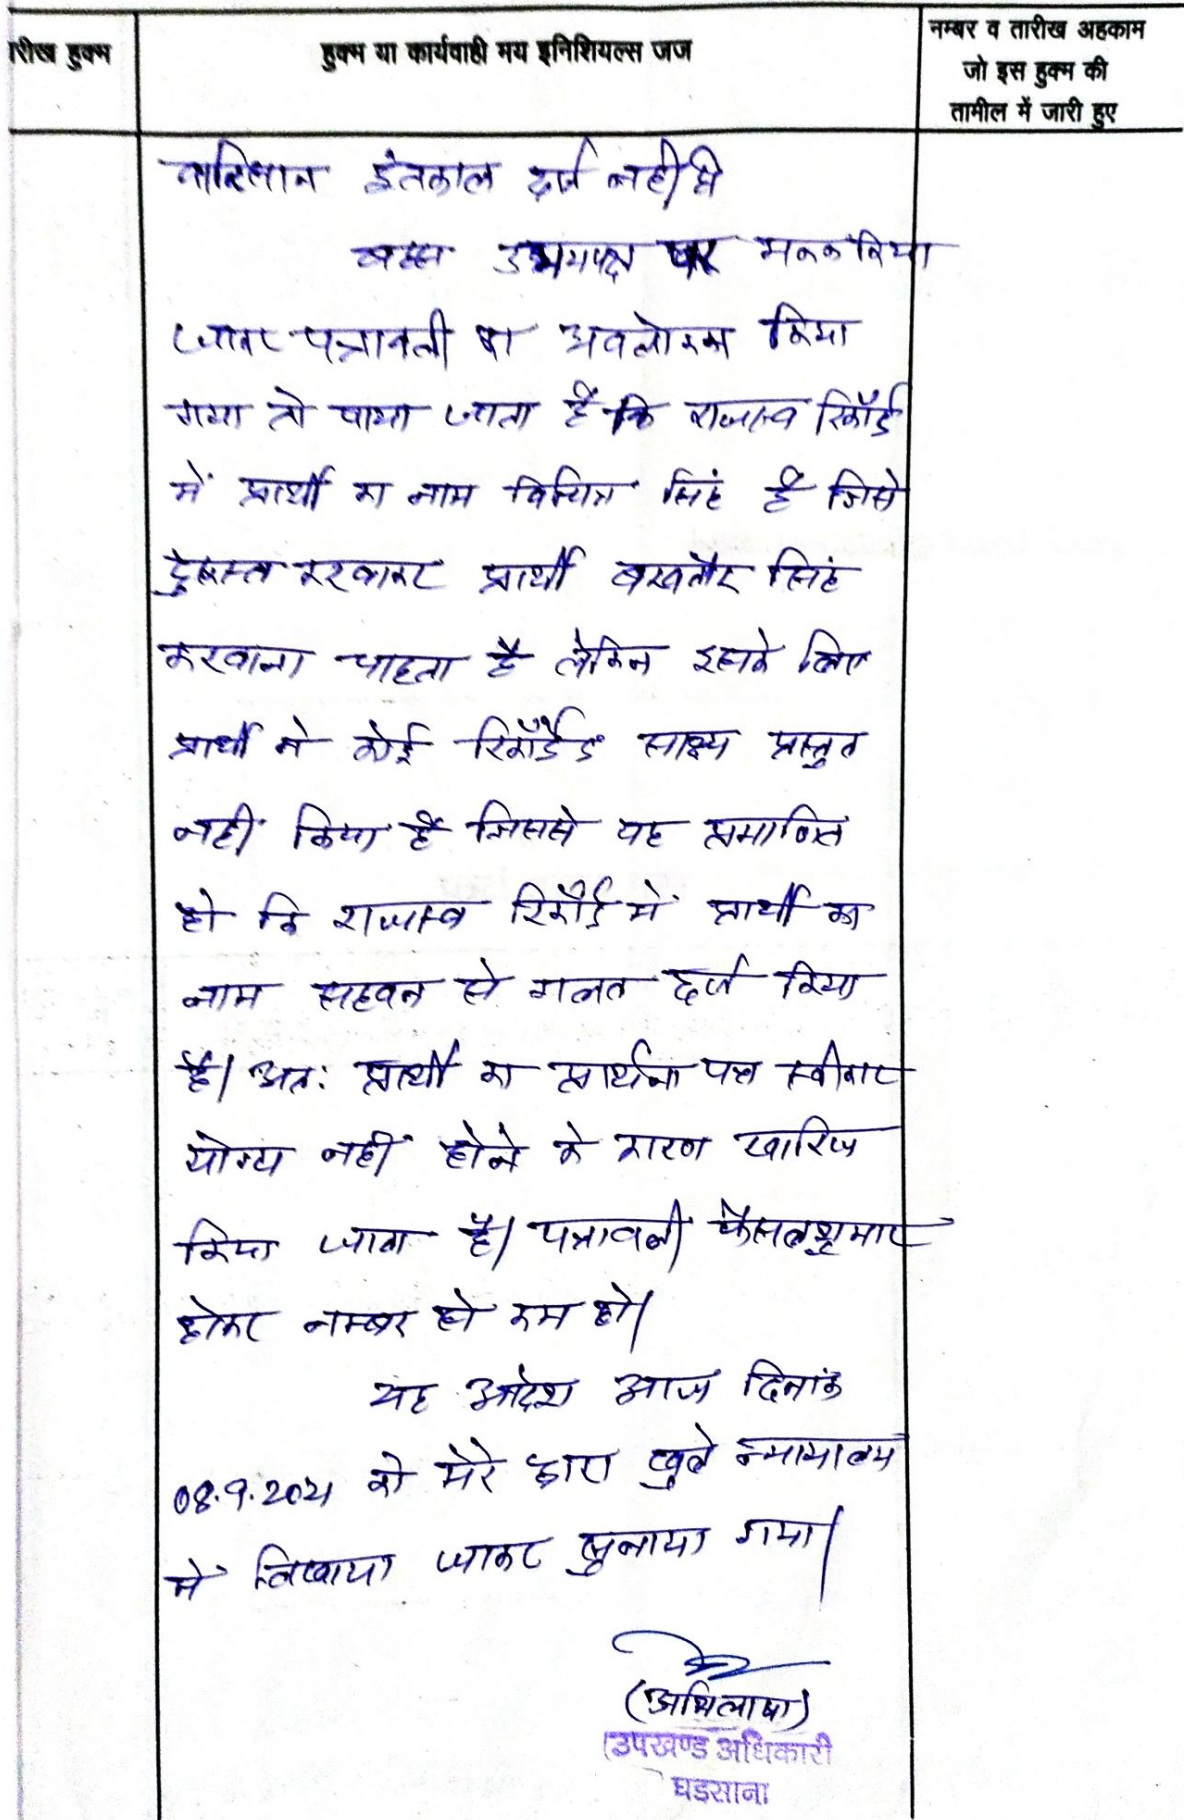 रीख हुक्म
हुक्म या कार्यवाही मय इनिशियल्स जज
नम्बर व तारीख अहकाम
जो इस हुक्म की
तामील में जारी हुए
वारिसान इंतकाल दर्ज नही है
बहस उभयपक्ष पर मनन किया
जाकर पत्रावली का अवलोकन किया
गया तो पाया जाता है कि राजस्व रिकॉर्ड
में प्रार्थी का नाम विचित्र सिंह है जिसे
दुरूस्त करवाकर प्रार्थी बखतौर सिंह
करवाना चाहता है लेकिन इसके लिए
प्रार्थी ने कोई रिकॉर्डेड साक्ष्य प्रस्तुत
नहीं किया है जिससे यह प्रमाणित
हो कि राजस्व रिकॉर्ड में प्रार्थी का
नाम सहवन से गलत दर्ज किया
है। अतः प्रार्थी का प्रार्थना पत्र स्वीकार
योग्य नहीं होने के कारण खारिज
किया जाता है। पत्रावली फैसलशुमार
होकर नम्बर से कम हो।
यह आदेश आज दिनांक
08.9.2021 को मेरे द्वारा खुले न्यायालय
में लिखाया जाकर सुनाया गया।
(अभिलाषा)
उपखण्ड अधिकारी
घड़साना